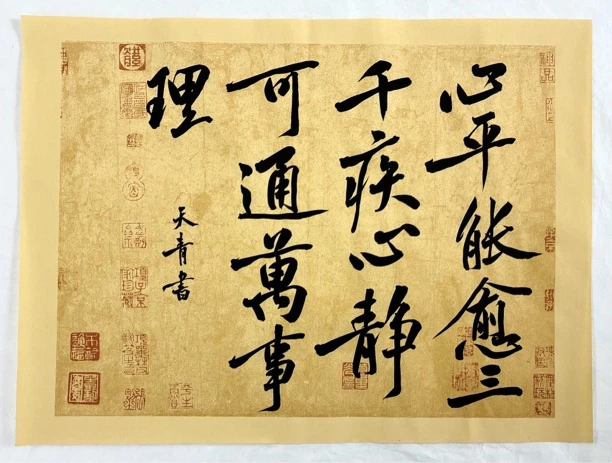 心平能愈三
千疾心静
可通萬事
理
天青書